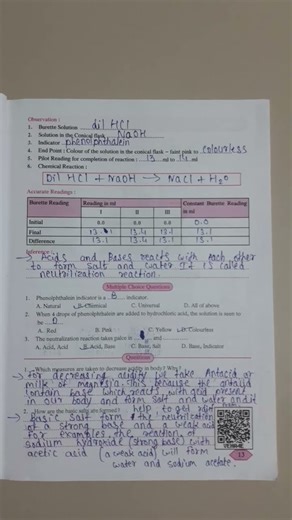 Observation :
1. Burette Solution dil HCl
2. Solution in the Conical flask NaOH
3. Indicator phenolphthalein
4. End Point : Colour of the solution in the conical flask - faint pink to colourless
5. Pilot Reading for completion of reaction : 13 ml to 14 ml
6. Chemical Reaction :
Dil HCl + NaOH → NaCl + H2O
Accurate Readings :
Burette Reading Reading in ml Constant Burette Reading in ml
I II III
Initial 0.0 0.0 0.0 0.0
Final 13.1 13.4 13.1 13.1
Difference 13.1 13.4 13.1 13.1
Inference :
→ Acids and Bases reacts with each other
to form salt and water It is called
neutralization reaction.
Multiple Choice Questions
1. Phenolphthalein indicator is a B indicator.
A. Natural B. Chemical C. Universal D. All of above
2. When 4 drops of phenolphthalein are added to hydrochloric acid, the solution is seen to
be D
A. Red B. Pink C. Yellow D. Colourless
3. The neutralization reaction takes palce in and
A. Acid, Acid B. Acid, Base C. Base, Salt D. Base, Indicator
Questions
1. Which measures are taken to decrease acidity in body? Why?
→ For decreasing acidity we take Antacid or
milk of magnesia. This because the antacid
contain base which reacts with acid present
in our body and form salt and water and it
help to get
2. How are the basic salts are formed?
→ Basic salt form the neutrilication
of a strong base and a weak acid
For examples, the reaction of
sodium hydroxide (strong base) with
acetic acid (a weak acid) will form
water and sodium acetate.
13